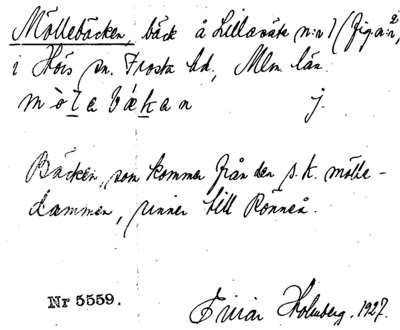 Möllebäcken, bäck å Lillasäte n:r 1 (fig. a:n,
i Hörs sn. Frosta hd., Mlm. län.
j.
Bäcken, som kommer från den s.k. mölle-
dammen, rinner till Rönneå.
Nr 5559.
Einar Holmberg. 1927.